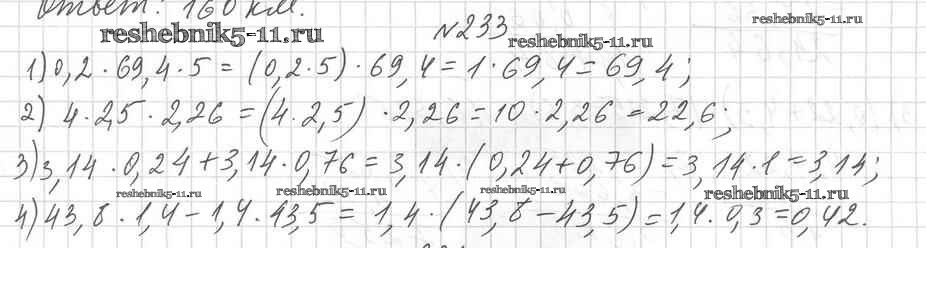 Ответ: 160 км.
reshebnik5-11.ru
reshebnik5-11.ru
№233
reshebnik5-11.ru
1) 0,2 · 69,4 · 5 = (0,2 · 5) · 69,4 = 1 · 69,4 = 69,4;
2) 4 · 2,5 · 2,26 = (4 · 2,5) · 2,26 = 10 · 2,26 = 22,6;
3) 3,14 · 0,24 + 3,14 · 0,76 = 3,14 · (0,24 + 0,76) = 3,14 · 1 = 3,14;
reshebnik5-11.ru reshebnik5-11.ru reshebnik5-11.ru reshebnik5-11.ru
4) 43,8 · 1,4 - 1,4 · 43,5 = 1,4 · (43,8 - 43,5) = 1,4 · 0,3 = 0,42.